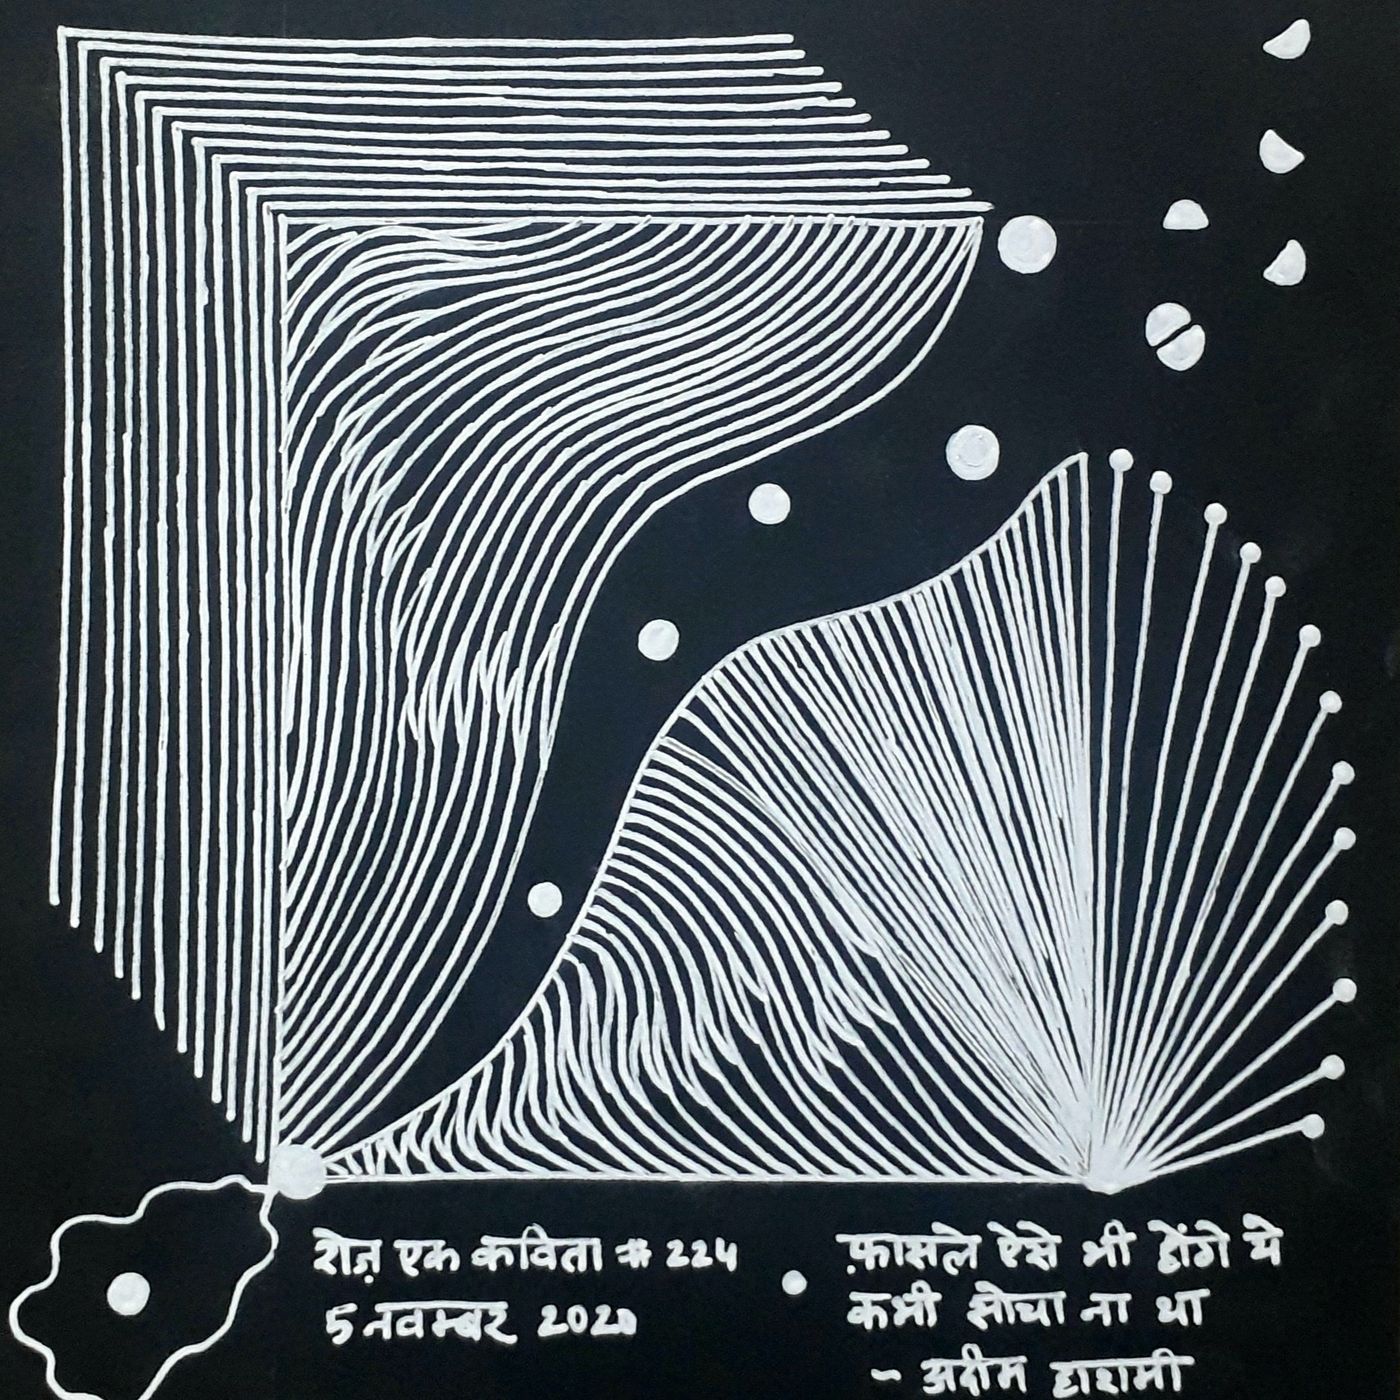 रोज़ एक कविता # 224
5 नवम्बर 2020
फ़ासले ऐसे भी होंगे ये
कभी सोचा ना था
~ अदीम हाशमी